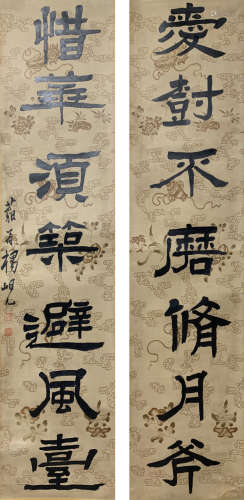 愛對不磨脩月斧
惜華須築避風臺
藐翁楊峴